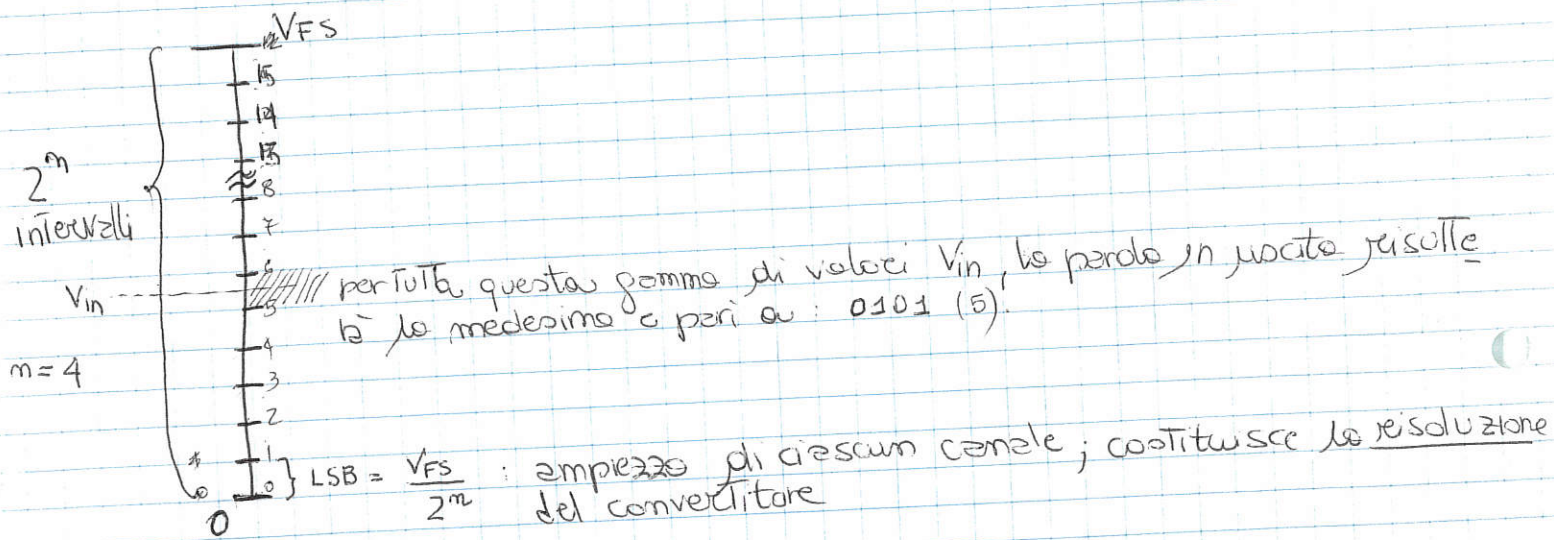 VFS
15
14
13
8
2^n
intervalli
7
6
Vin per tutta questa gamma di valori Vin, la parola in uscita risulte
rà la medesima e pari a: 0101 (5).
5
n=4
4
3
2
1
0 } LSB = VFS / 2^n : ampiezza di ciascun canale; costituisce la risoluzione
del convertitore
0